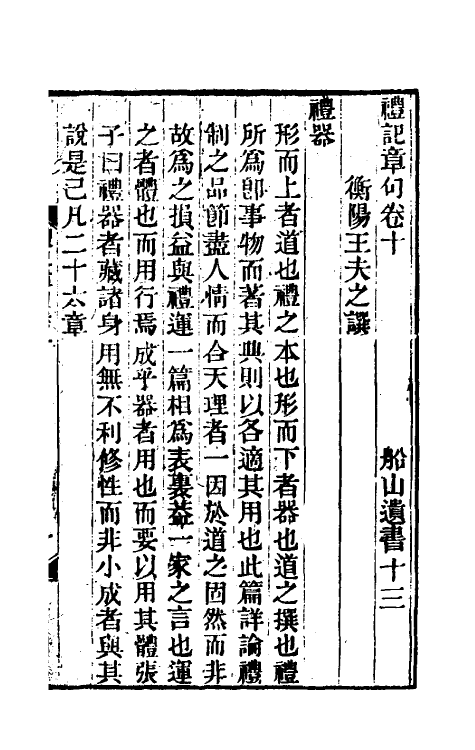 禮記章句卷十 船山遺書十三
衡陽王夫之譔
禮器
形而上者道也禮之本也形而下者器也道之撰也禮
所爲卽事物而著其典則以各適其用也此篇詳論禮
制之品節盡人情而合天理者一因於道之固然而非
故爲之損益與禮運一篇相爲表裏蓋一家之言也運
之者體也而用行焉成乎器者用也而要以用其體張
子曰禮器者藏諸身用無不利修性而非小成者與其
說是已凡二十六章